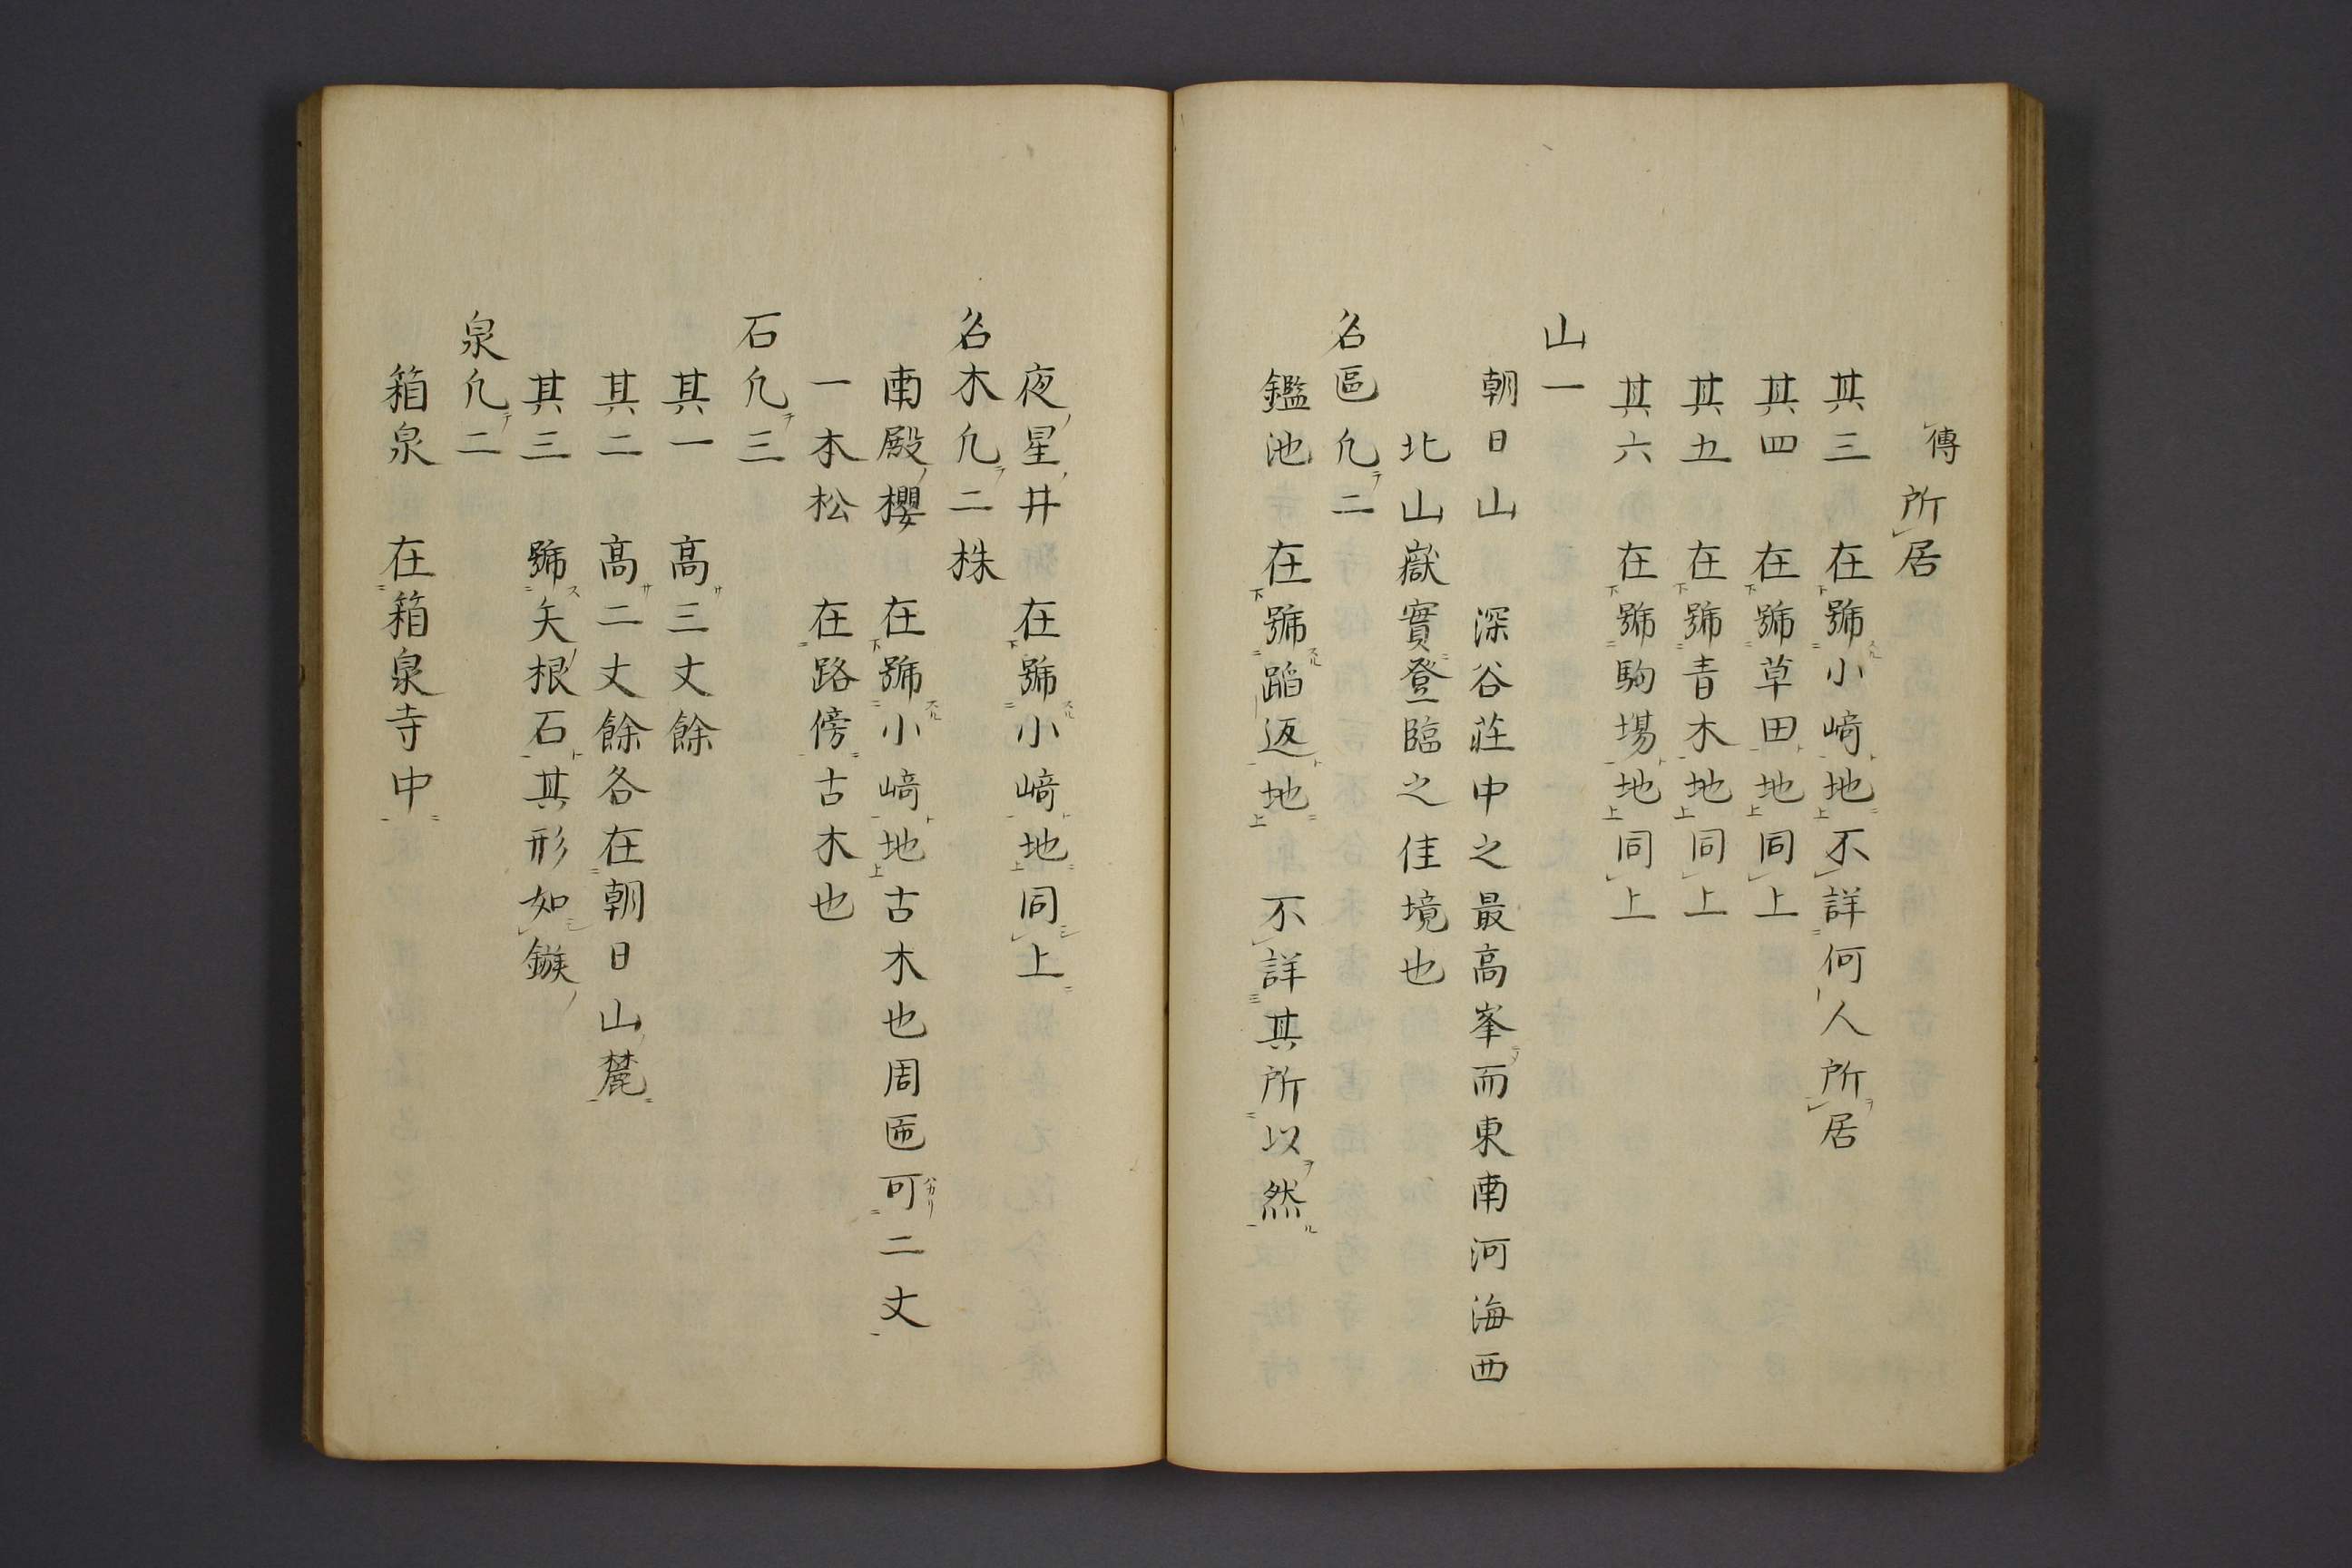 傳所居
其三 在號小﨑地不詳何人所居
其四 在號草田地同上
其五 在號青木地同上
其六 在號駒場地同上
山一
朝日山 深谷莊中之最高峯而東南河海西
北山嶽實登臨之佳境也
名區凢二
鑑池 在號蹈返地 不詳其所以然
夜星井 在號小﨑地同上
名木凢二株
南殿櫻 在號小﨑地古木也周匝可二丈
一本松 在路傍古木也
石凢三
其一 高三丈餘
其二 高二丈餘各在朝日山麓
其三 號矢根石其形如鏃
泉凢二
箱泉 在箱泉寺中